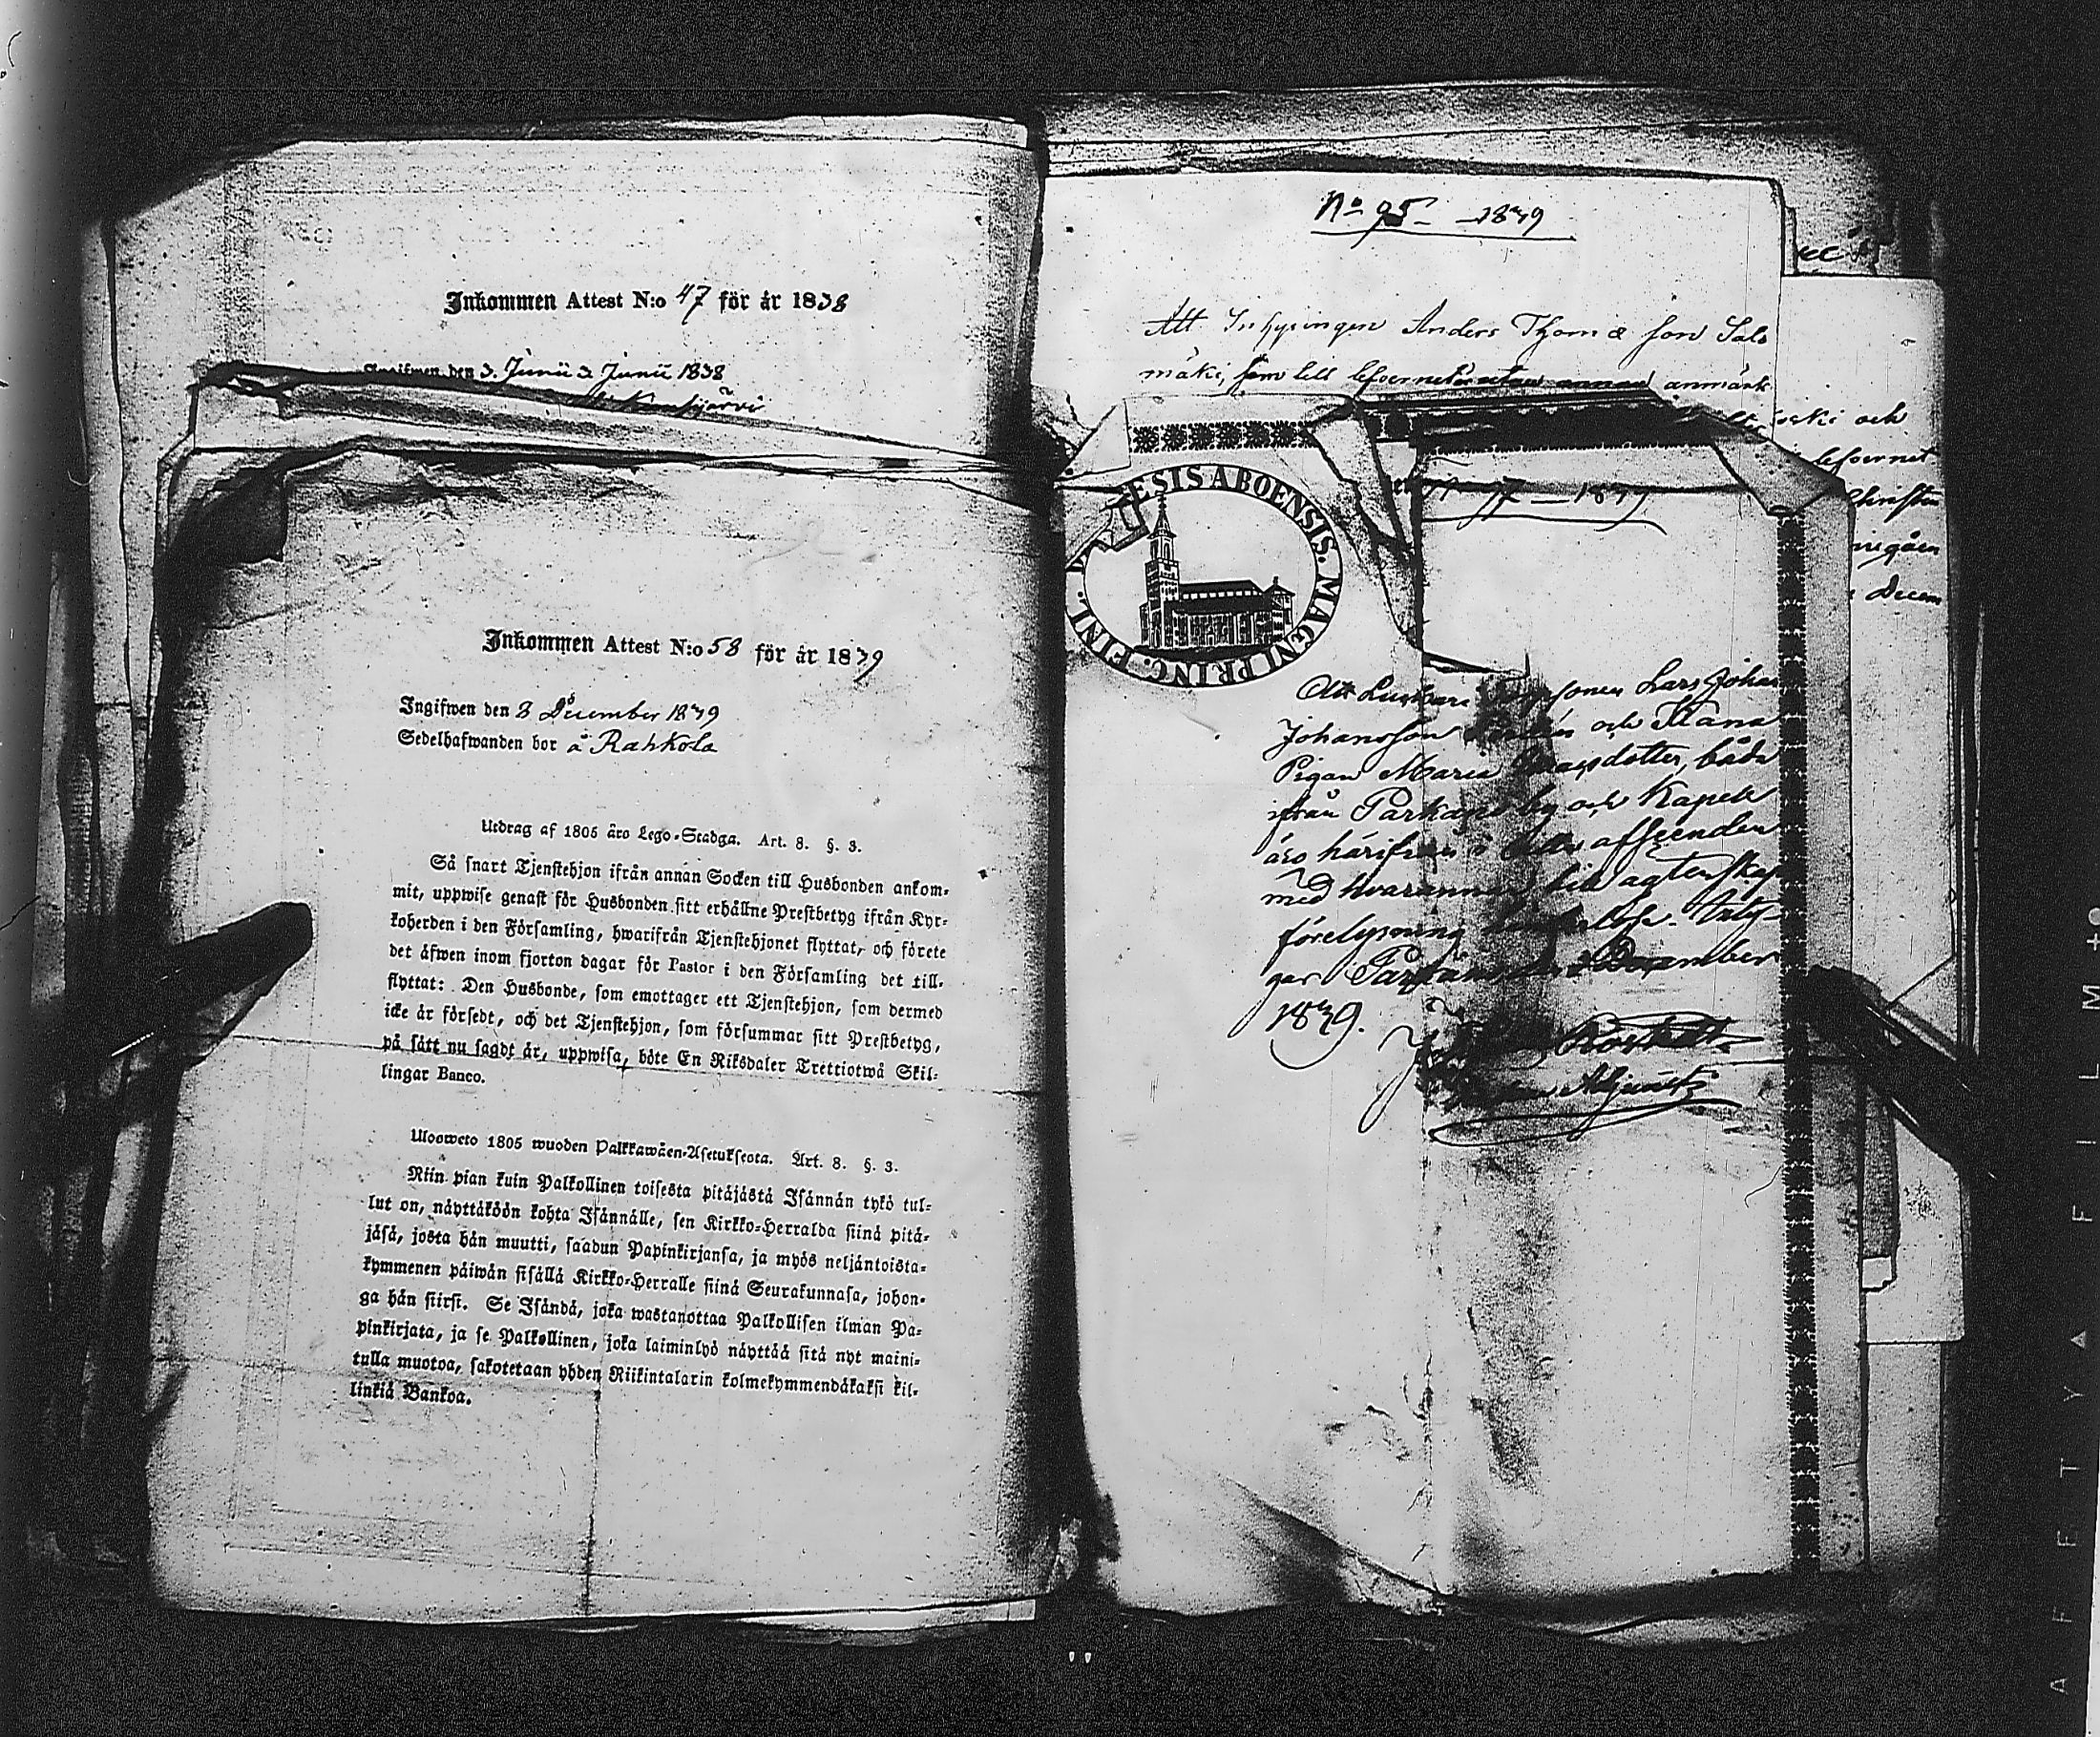 Inkommen Attest N:o 47 för år 1838
Ingifwen den 3. Junii 3 Junii 1838
Kankijärvi
Inkommen Attest N:o 58 för år 1839
Ingifwen den 8 December 1839
Sedelhafwanden bor å Rahkola
Utdrag af 1805 års Lego-Stadga. Art. 8. §. 3.
Så snart Tjenstehjon ifrån annan Socken till Husbonden ankom-
mit, uppwise genast för Husbonden sitt erhållne Prestbetyg ifrån Kyr-
koherden i den Församling, hwarifrån Tjenstehjonet flyttat, och förete
det äfwen inom fjorton dagar för Pastor i den Församling det till-
flyttat: Den Husbonde, som emottager ett Tjenstehjon, som dermed
icke är försedt, och det Tjenstehjon, som försummar sitt Prestbetyg,
på sätt nu sagdt är, uppwisa, böte En Riksdaler Trettiotwå Skil-
lingar Banco.
Ulosweto 1805 wuoden Palkkawäen-Asetuksesta. Art. 8. §. 3.
Niin pian kuin Palkollinen toisesta pitäjästä Isännän tykö tul-
lut on, näyttäköön kohta Isännälle, sen Kirkko-Herralda siinä pitä-
jäsä, josta hän muutti, saadun Papinkirjansa, ja myös neljäntoista-
kymmenen päiwän sisällä Kirkko-Herralle siinä Seurakunnasa, johon-
ga hän siirsi. Se Isändä, joka wastanottaa Palkollisen ilman Pa-
pinkirjata, ja se Palkollinen, joka laiminlyö näyttää sitä nyt maini-
tulla muotoa, sakotetaan yhden Riikintalarin kolmekymmendäkaksi kil-
linkiä Bankoa.
No 95 1839
Att Inhysingen Anders Thomæ son Salo
mäki, som till lefvernet utan annan anmärk
och
lefvernet
Christen
Decem
ESIS ABOENSIS. MAGNI PRINC. FINL.
77 1839
Att Lars Johan
Johansson och Stana
Pigan Maria dotter, båda
ifrån Parkano by och Kapell
äro härifrån afseenden
med hvarannan till ägtenskap
förelysning hinderlöse. Bety-
gar Parkano den December
1839.
Adjunct